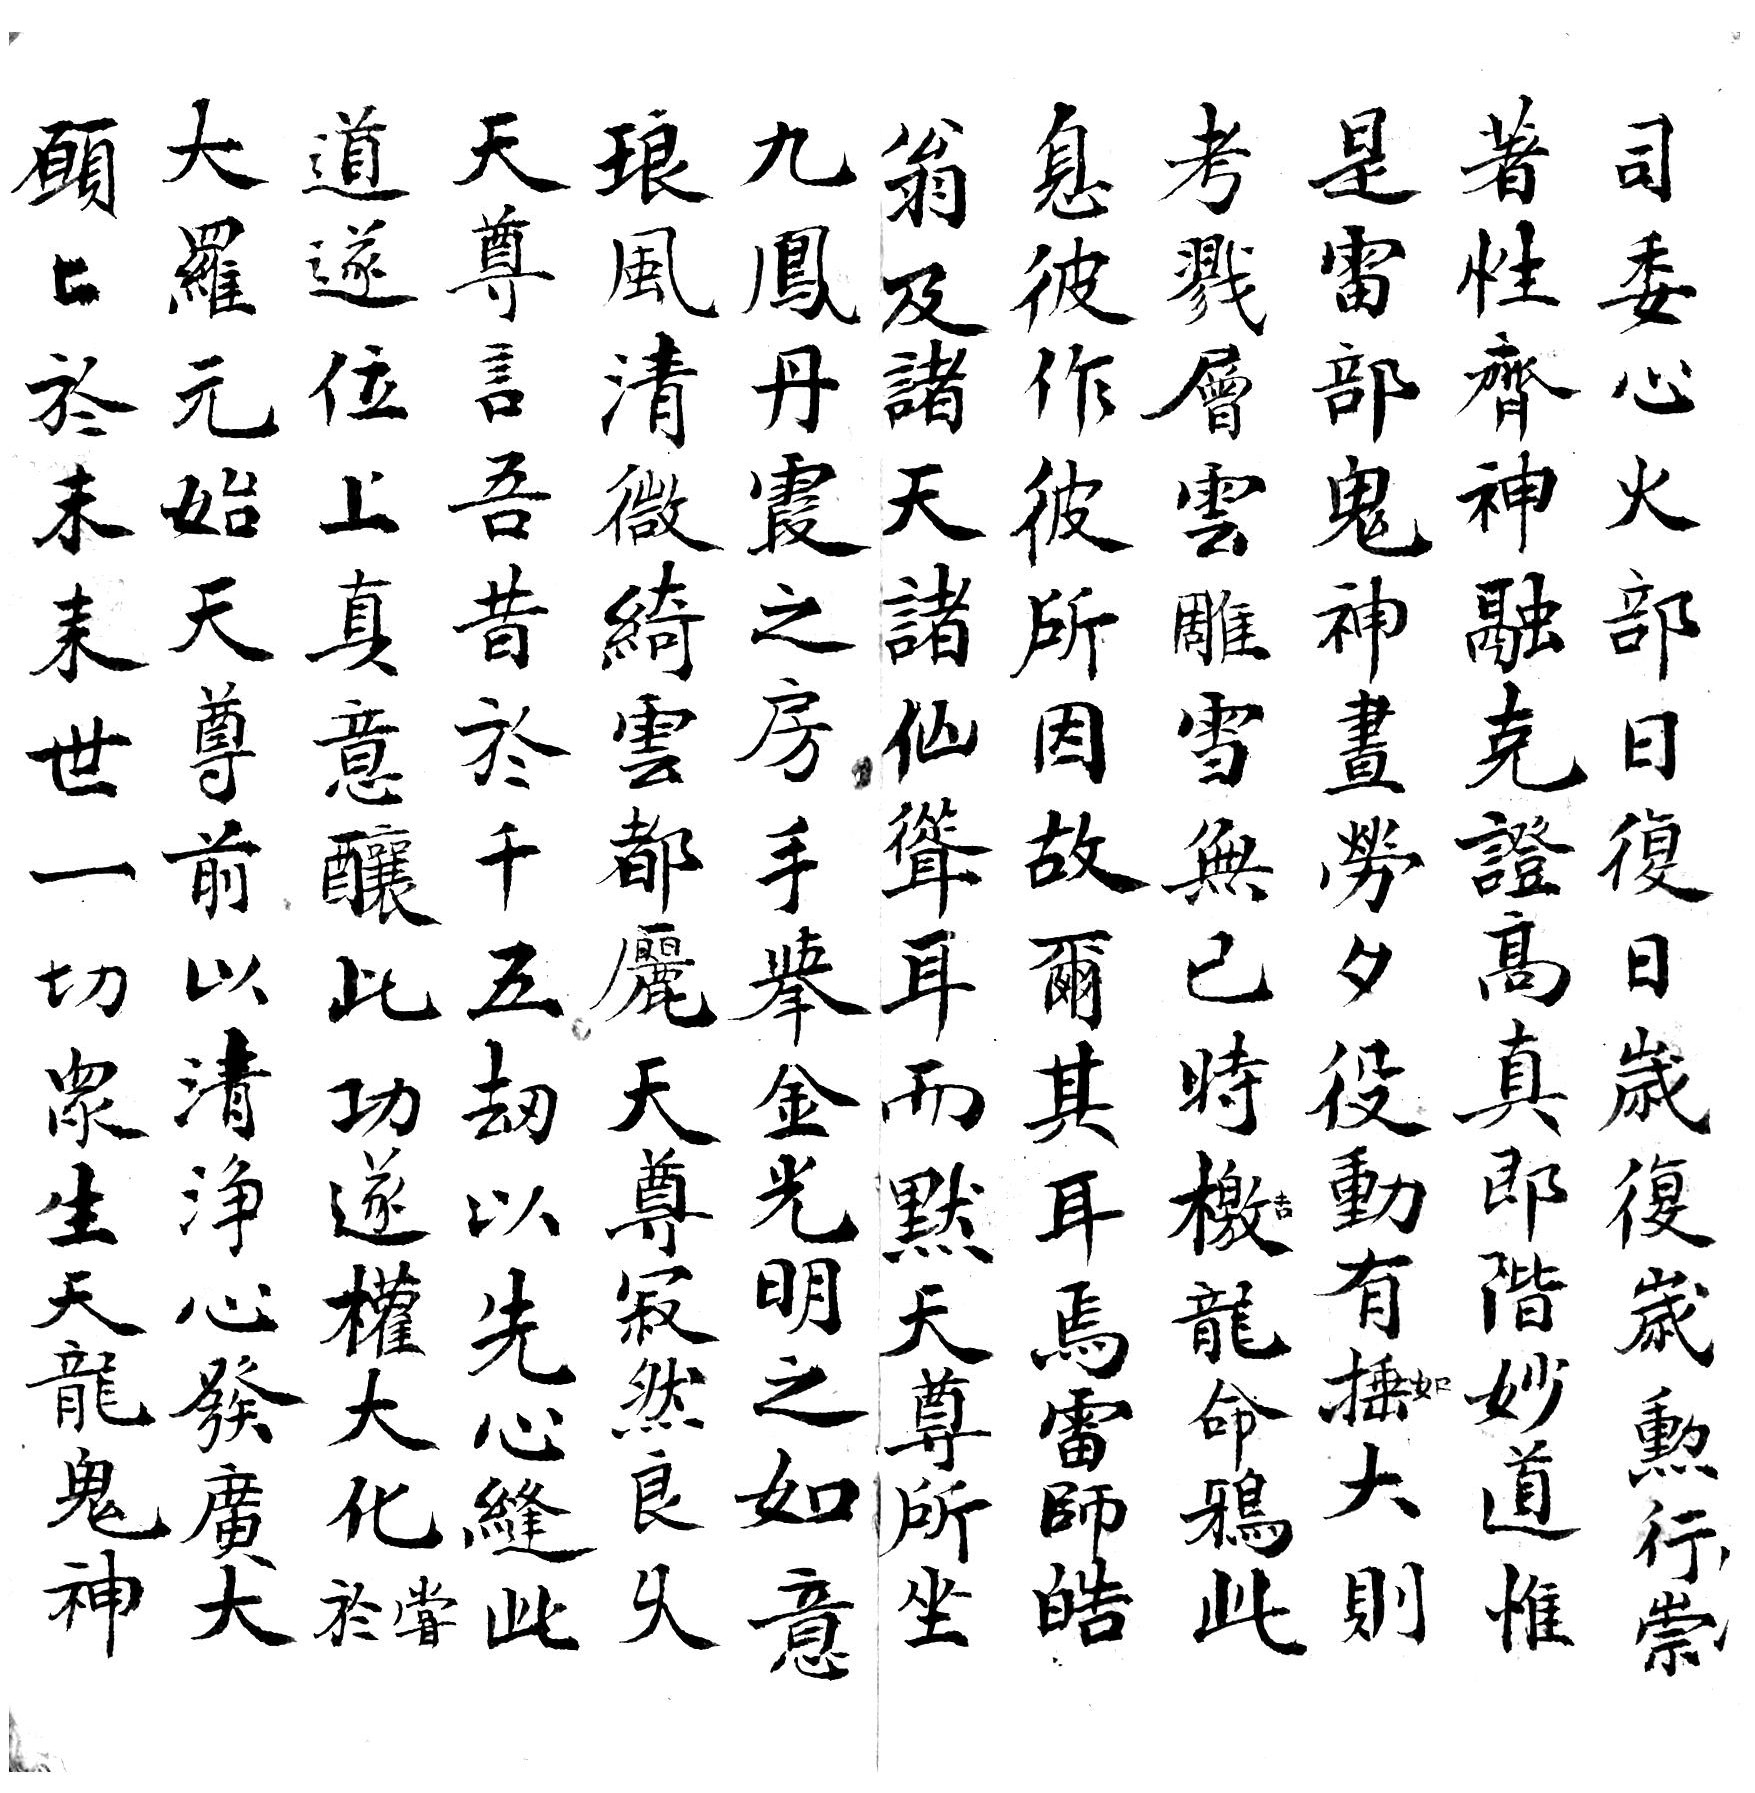 司委心火部日復日歲復歲勲行崇
著性齊神融克證髙真即階妙道惟
是雷部鬼神晝勞夕役動有捶如大則
考戮層雲雕雪無已時檄吉龍命鴉此
息彼作彼所因故爾其耳焉雷師皓
翁及諸天諸仙聳耳而默天尊所坐
九鳳丹霞之房手舉金光明之如意
琅風清微綺雲都儷天尊寂然良久
天尊言吾昔於千五劫以先心縫此
道遂位上真意釀此功遂權大化嘗於
大羅元始天尊前以清淨心發廣大
願願於未來世一切眾生天龍鬼神